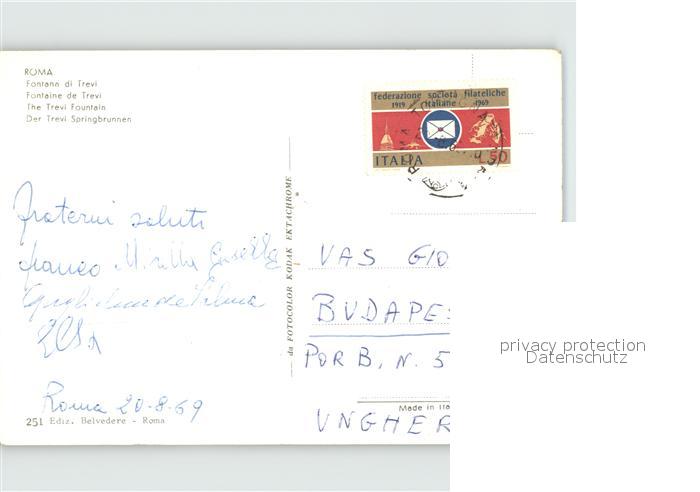 ROMA
Fontana di Trevi
Fontaine de Trevi
The Trevi Fountain
Der Trevi Springbrunnen
federazione società filateliche
1919 italiane 1969
ITALIA L.50
fraterni saluti
franco Mirella
Roma 20-8-69
251 Ediz. Belvedere - Roma
da FOTOCOLOR KODAK EKTACHROME
VAS GIO
BUDAPE
POR B, N. 5
Made in Ita
UNGHER
privacy protection
Datenschutz